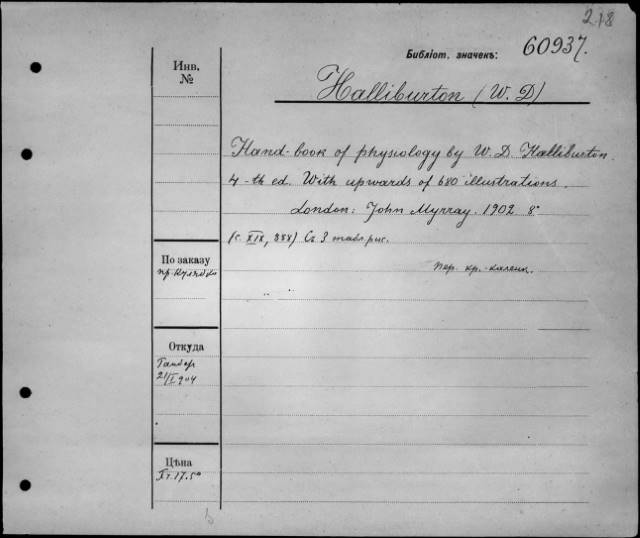 218
Библіот. значекъ: 60937.
Инв.
№
Halliburton (W. D)
Hand-book of physiology by W. D. Halliburton.
4-th ed. With upwards of 680 illustrations.
London: John Myrray. 1902 8°
(с. XIX, 888) Съ 3 табл. рис.
По заказу
Пер. кр.-коленк.
Откуда
21/I 904
Цѣна
17.50